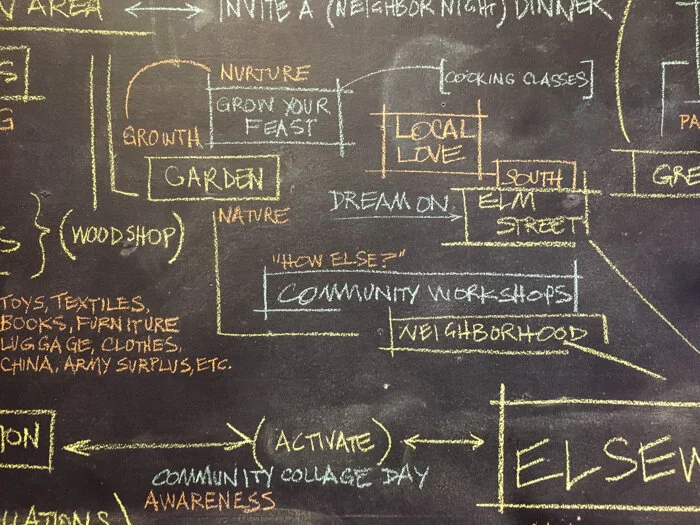 AREA
INVITE A (NEIGHBOR NIGHT) DINNER
NURTURE
[COOKING CLASSES]
GROW YOUR
FEAST
GROWTH
LOCAL
LOVE
GARDEN
SOUTH
GRE
PA
S
G
NATURE
DREAM ON
ELM
STREET
S } (WOODSHOP)
"HOW ELSE?"
COMMUNITY WORKSHOPS
TOYS, TEXTILES,
BOOKS, FURNITURE
LUGGAGE, CLOTHES,
CHINA, ARMY SURPLUS, ETC.
NEIGHBORHOOD
ION
(ACTIVATE)
ELSEW
COMMUNITY COLLAGE DAY
AWARENESS
LLATIONS)